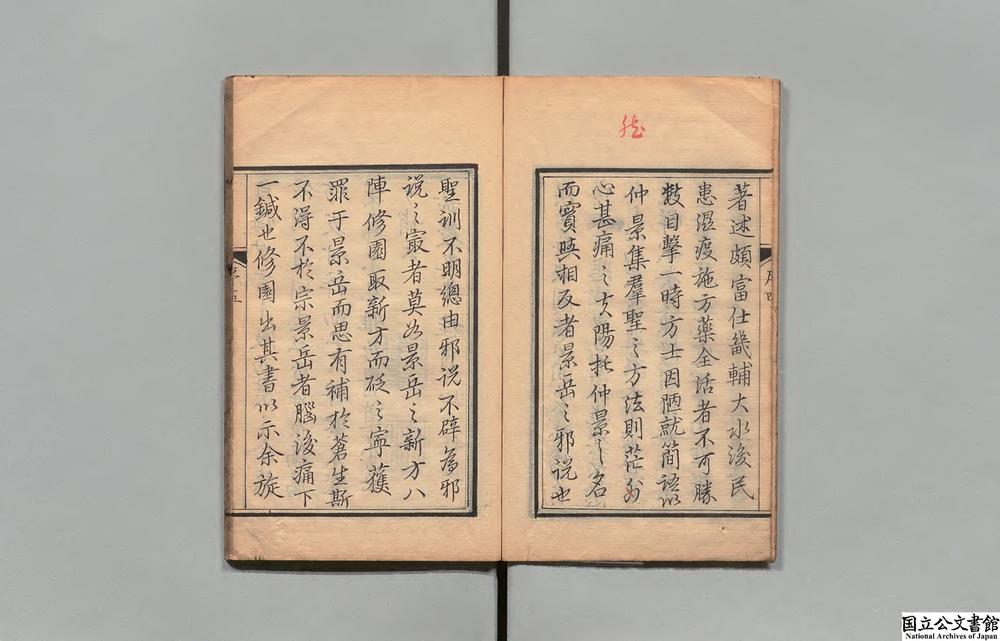 著述頗富仕畿輔大水後民
患濕疫施方藥全活者不可勝
數目擊一時方士因陋就簡語以
仲景集羣聖之方法則茫然
心甚痛之夫陽托仲景之名
而實與相反者景岳之邪說也
序四
聖訓不明總由邪說不辟為邪
說之最者莫如景岳之新方八
陣修園取新方而砭之寧獲
罪于景岳而思有補於蒼生斯
不得不於宗景岳者腦後痛下
一鍼也修園出其書以示余旋
序五
国立公文書館
National Archives of Japan